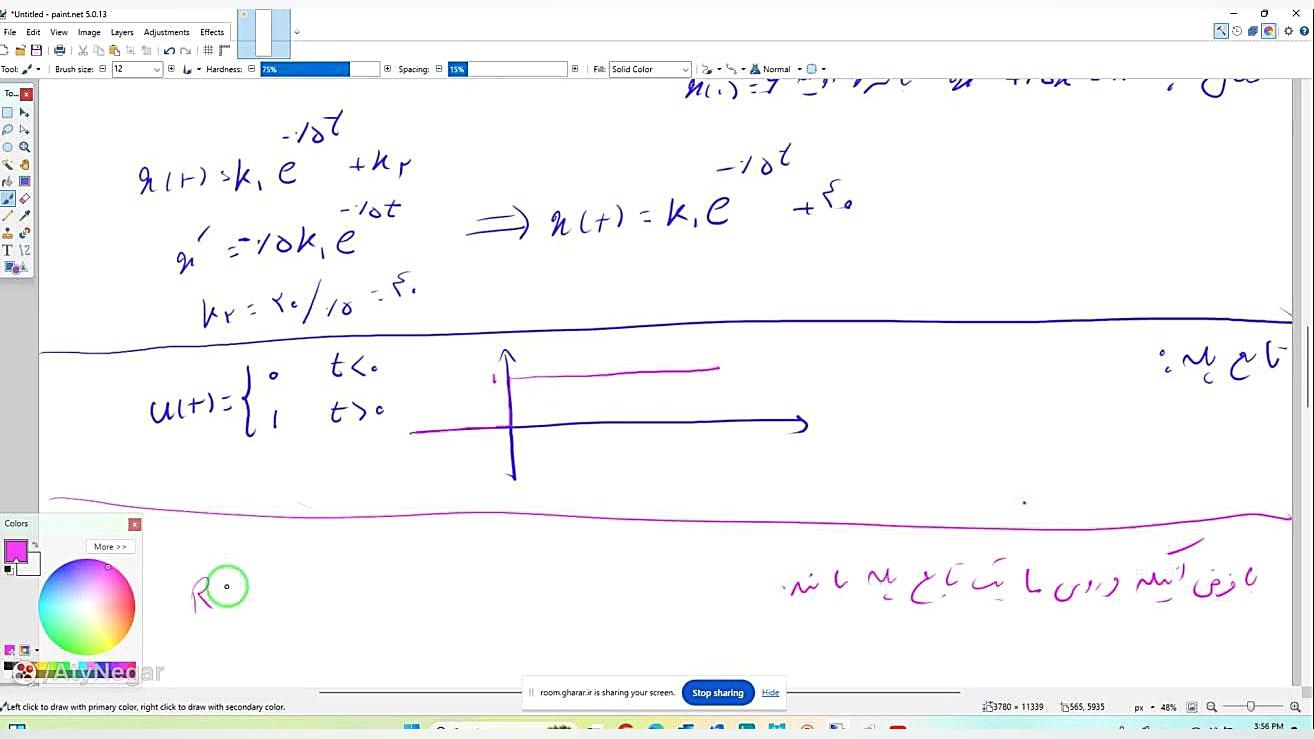 *Untitled - paint.net 5.0.13
File Edit View Image Layers Adjustments Effects
Tool: Brush size: 12 Hardness: 75% Spacing: 15% Fill: Solid Color Normal
To...
x(t) = k₁ e^{-۰/۵t} + k₂
x′ = -۰/۵k₁ e^{-۰/۵t} ⇒ x(t) = k₁ e^{-۰/۵t} + ۴۰
k₂ = ۲۰/۰/۵ = ۴۰
تابع پله :
u(t) = { ۰ t<۰
۱ t>۰
۱
Colors
More >>
با فرض آنکه ورودی ما یک تابع پله باشد.
R
/AtyNegar
room.gharar.ir is sharing your screen. Stop sharing Hide
Left click to draw with primary color, right click to draw with secondary color. 3780 × 11339 565, 5935 px 48%
3:56 PM